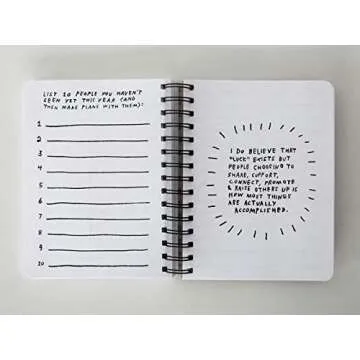 LIST 10 PEOPLE YOU HAVEN'T
SEEN YET THIS YEAR (AND
THEN MAKE PLANS WITH THEM):
1
2
3
4
5
6
7
8
9
10
I DO BELIEVE THAT
"LUCK" EXISTS BUT
PEOPLE CHOOSING TO
SHARE, SUPPORT,
CONNECT, PROMOTE
& RAISE OTHERS UP IS
HOW MOST THINGS
ARE ACTUALLY
ACCOMPLISHED.